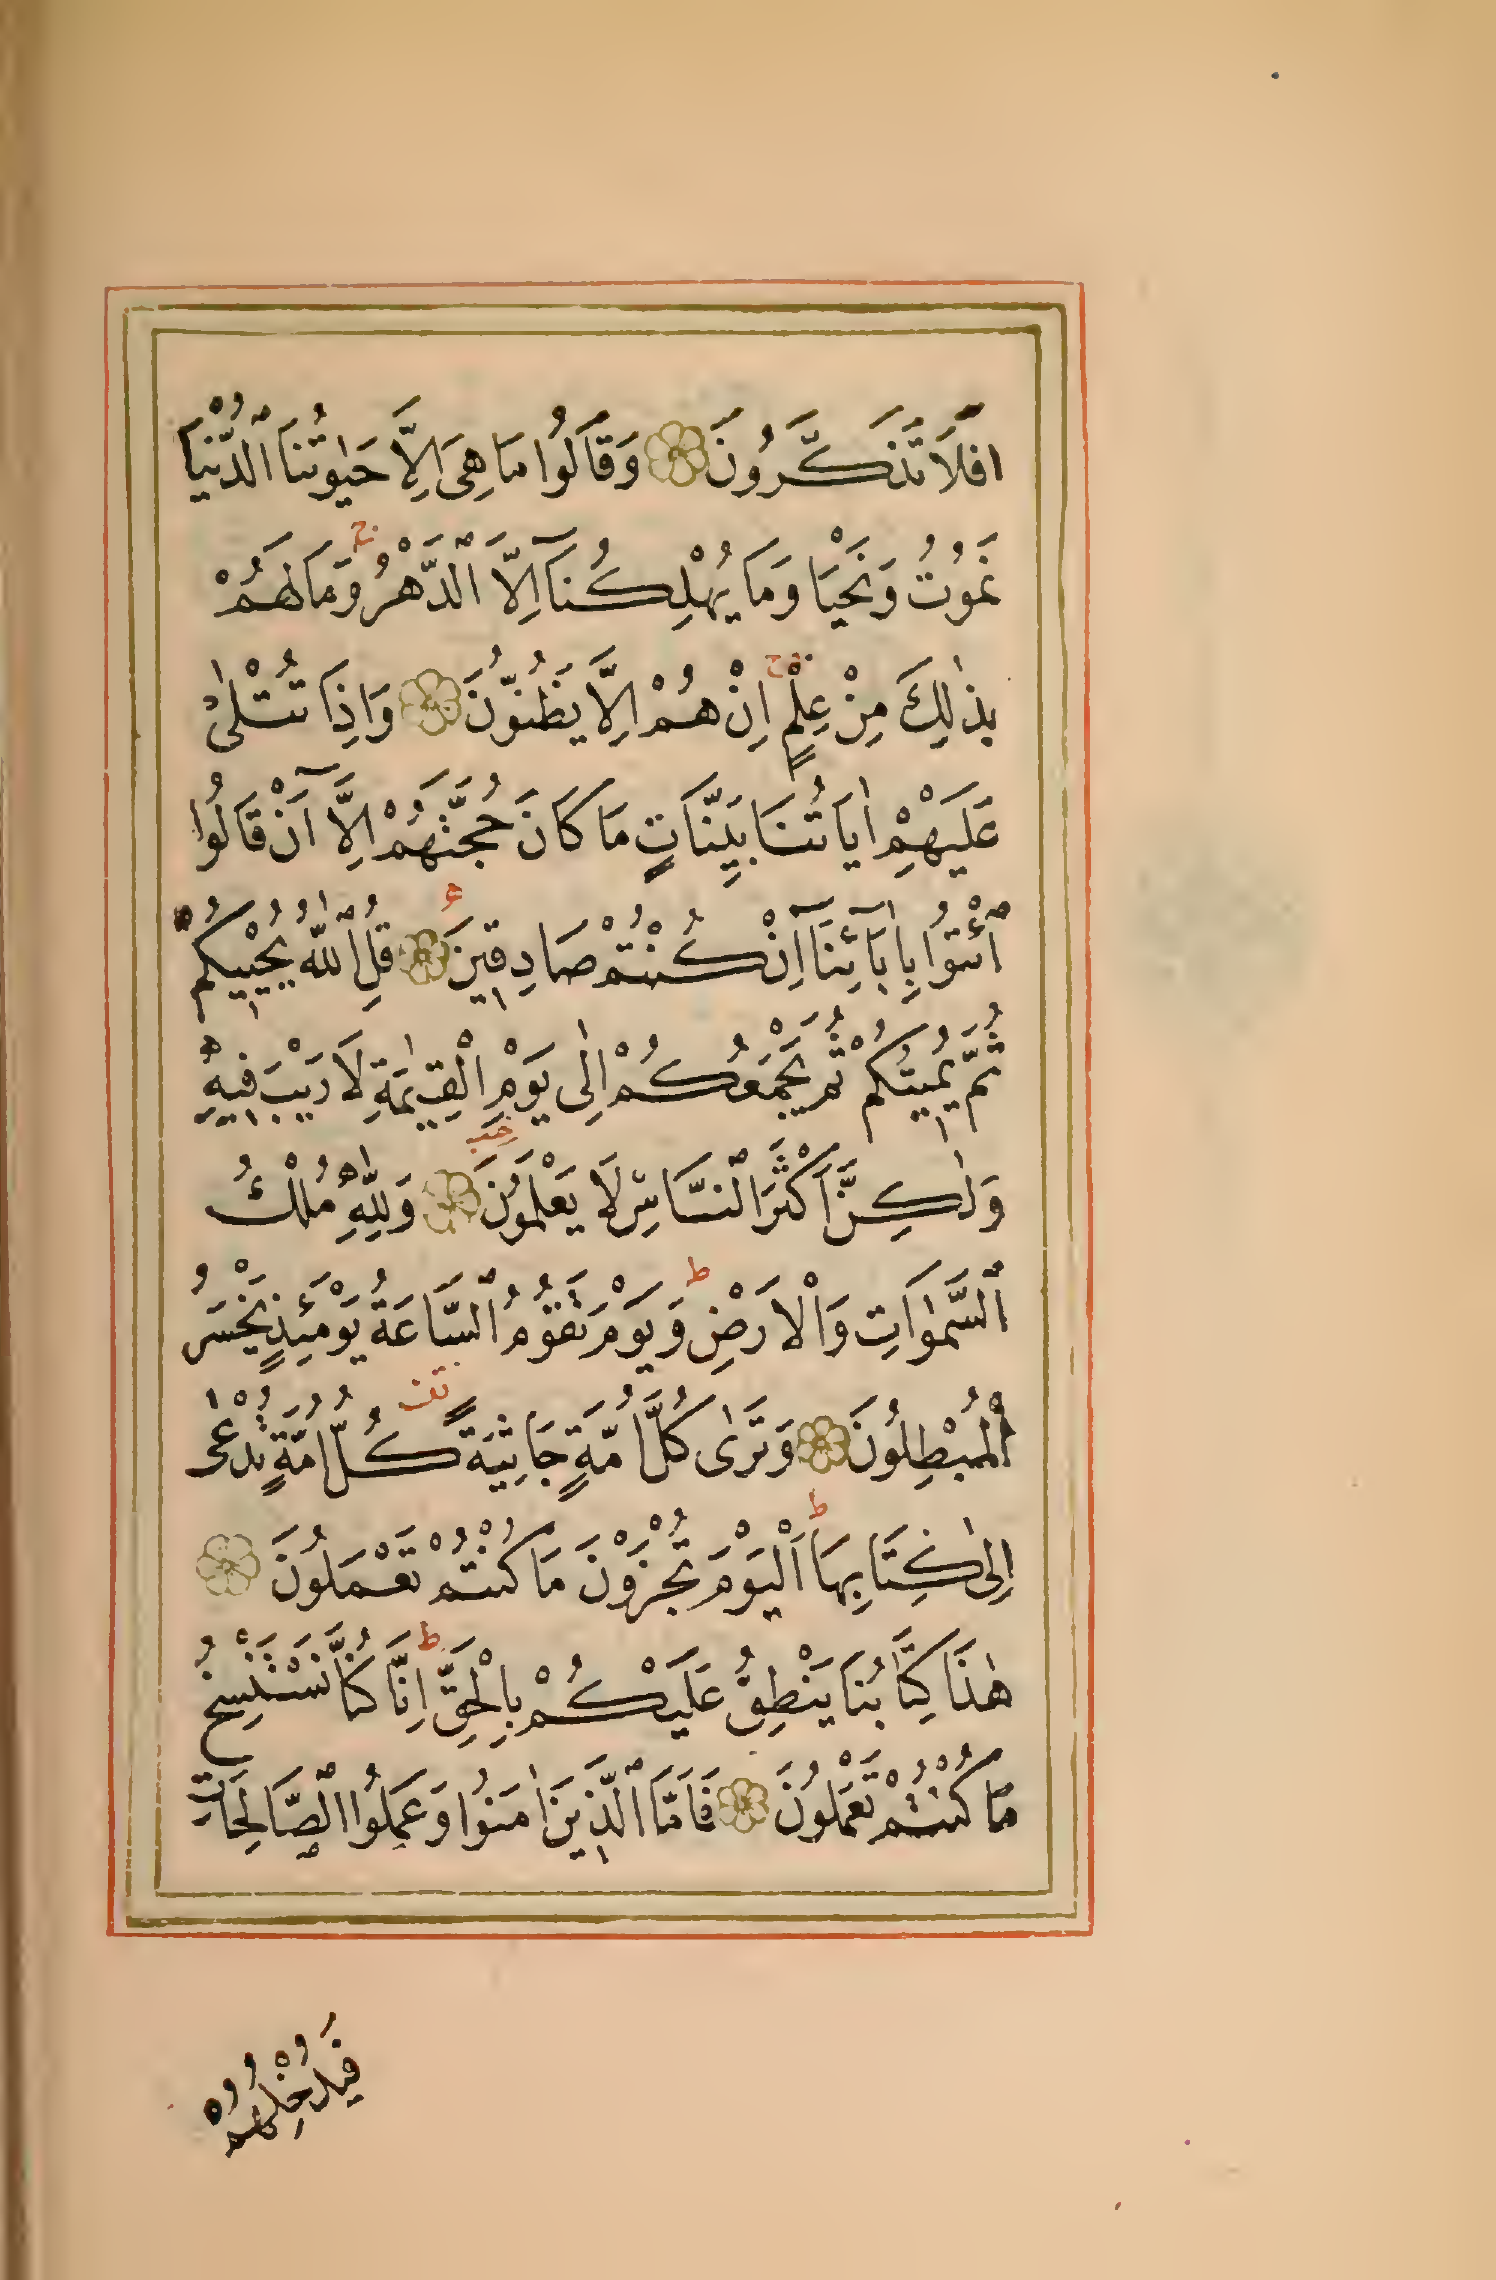 اَفَلَا تَذَكَّرُونَ وَقَالُوا مَا هِىَ اِلَّا حَيٰوتُنَا الدُّنْيَا
نَمُوتُ وَنَحْيَا وَمَا يُهْلِكُنَآ اِلَّا الدَّهْرُ ج وَمَا لَهُمْ
بِذٰلِكَ مِنْ عِلْمٍ ج اِنْ هُمْ اِلَّا يَظُنُّونَ وَاِذَا تُتْلٰى
عَلَيْهِمْ اٰيَاتُنَا بَيِّنَاتٍ مَا كَانَ حُجَّتَهُمْ اِلَّآ اَنْ قَالُوا
ائْتُوا بِاٰبَآئِنَآ اِنْ كُنْتُمْ صَادِقِينَ ء قُلِ اللّٰهُ يُحْيِيكُمْ
ثُمَّ يُمِيتُكُمْ ثُمَّ يَجْمَعُكُمْ اِلٰى يَوْمِ الْقِيٰمَةِ لَا رَيْبَ فِيهِ
وَلٰكِنَّ اَكْثَرَ النَّاسِ لَا يَعْلَمُونَ وَلِلّٰهِ مُلْكُ
السَّمٰوَاتِ وَالْاَرْضِ ط وَيَوْمَ تَقُومُ السَّاعَةُ يَوْمَئِذٍ يَخْسَرُ
الْمُبْطِلُونَ وَتَرٰى كُلَّ اُمَّةٍ جَاثِيَةً كُلُّ اُمَّةٍ تُدْعٰى
اِلٰى كِتَابِهَا ط اَلْيَوْمَ تُجْزَوْنَ مَا كُنْتُمْ تَعْمَلُونَ
هٰذَا كِتَابُنَا يَنْطِقُ عَلَيْكُمْ بِالْحَقِّ ط اِنَّا كُنَّا نَسْتَنْسِخُ
مَا كُنْتُمْ تَعْمَلُونَ فَاَمَّا الَّذِينَ اٰمَنُوا وَعَمِلُوا الصَّالِحَاتِ
فَيُدْخِلُهُمْ